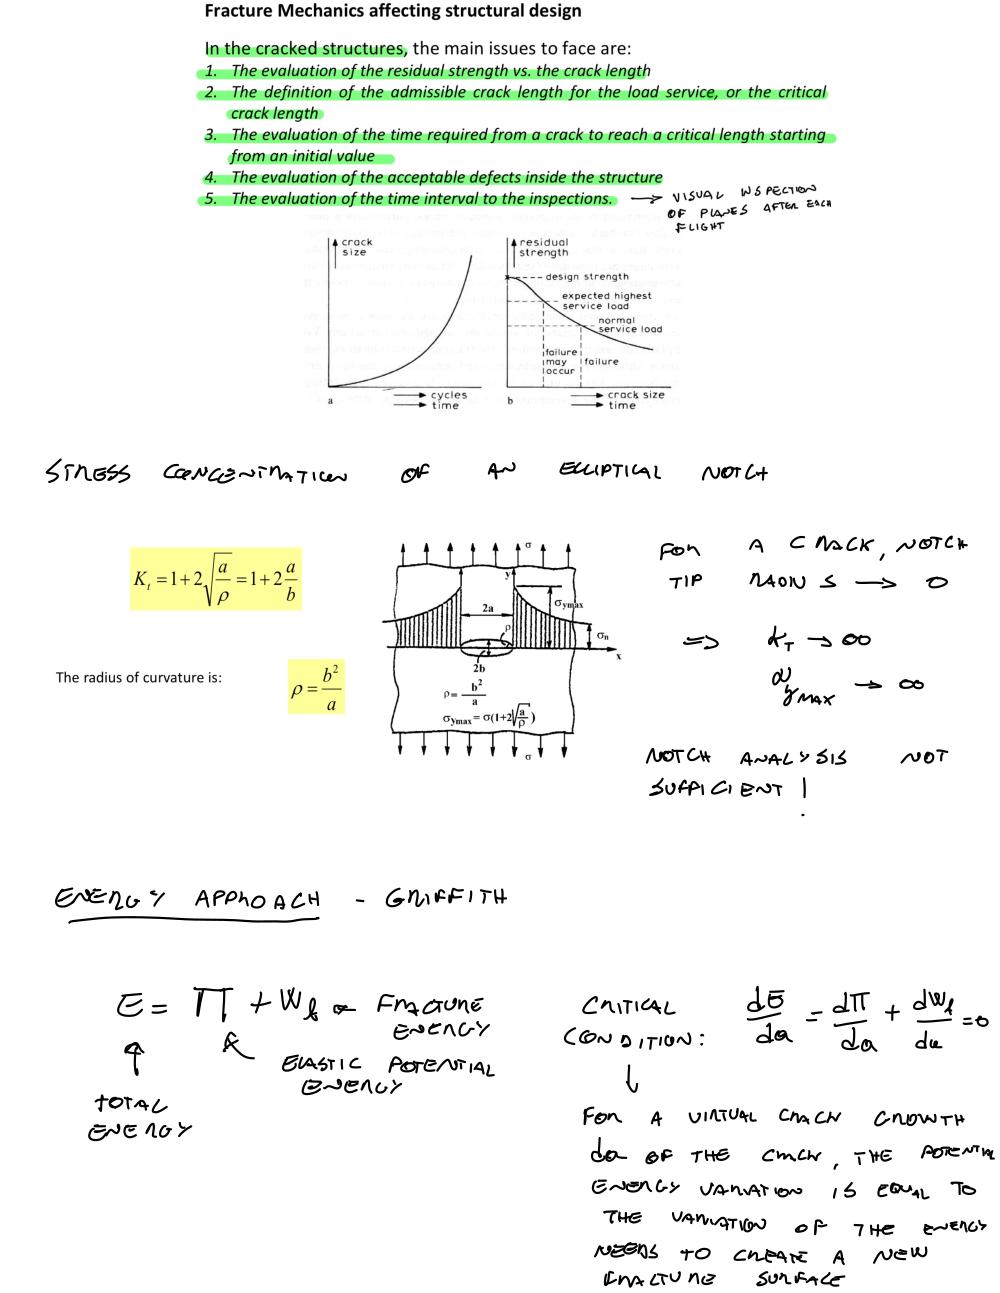 Fracture Mechanics affecting structural design
In the cracked structures, the main issues to face are:
1. The evaluation of the residual strength vs. the crack length
2. The definition of the admissible crack length for the load service, or the critical
crack length
3. The evaluation of the time required from a crack to reach a critical length starting
from an initial value
4. The evaluation of the acceptable defects inside the structure
5. The evaluation of the time interval to the inspections. → VISUAL INSPECTION
OF PLANES AFTER EACH
FLIGHT
crack
size
cycles
time
a
residual
strength
design strength
expected highest
service load
normal
service load
failure
may
occur
failure
crack size
time
b
STRESS CONCENTRATION OF AN ELLIPTICAL NOTCH
K_t = 1+2√(a/ρ) = 1+2 a/b
The radius of curvature is:
ρ = b²/a
σ
y
σymax
2a
ρ
σn
x
2b
ρ = b²/a
σymax = σ(1+2√(a/ρ))
σ
FOR A CRACK, NOTCH
TIP RADIUS → 0
=> K_T → ∞
σ_yMAX → ∞
NOTCH ANALYSIS NOT
SUFFICIENT !
ENERGY APPROACH - GRIFFITH
E = Π + W_f
FRACTURE
ENERGY
ELASTIC POTENTIAL
ENERGY
TOTAL
ENERGY
CRITICAL
CONDITION:
dE/da = dΠ/da + dW_f/da = 0
↓
FOR A VIRTUAL CRACK GROWTH
da OF THE CRACK, THE POTENTIAL
ENERGY VARIATION IS EQUAL TO
THE VARIATION OF THE ENERGY
NEEDS TO CREATE A NEW
FRACTURE SURFACE